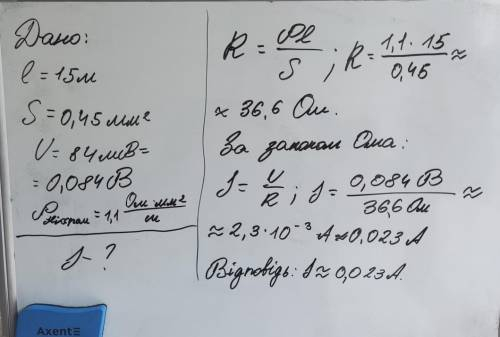 Дано:
l = 15м
S = 0,45 мм²
U = 84мВ=
= 0,084В
ρніхром = 1,1 Ом мм²/м
J - ?
R = ρl/S ; R = 1,1 · 15/0,45 ≈
≈ 36,6 Ом.
За законом Ома:
J = U/R ; J = 0,084 В/36,6 Ом ≈
≈ 2,3·10⁻³ А ≈ 0,023 А
Відповідь: J ≈ 0,023А.
Axent